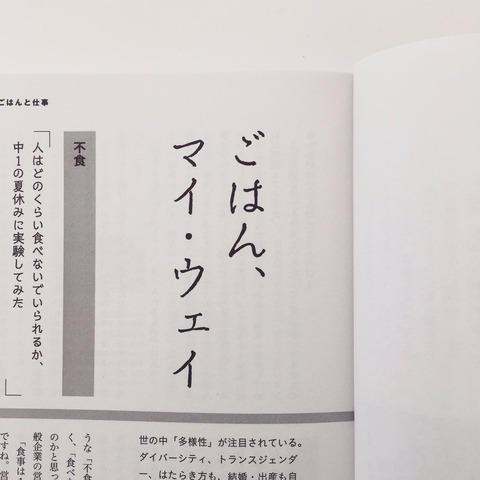 ごはんと仕事
ごはん、
マイ・ウェイ
不食
「人はどのくらい食べないでいられるか、
中1の夏休みに実験してみた」
世の中「多様性」が注目されている。
ダイバーシティ、トランスジェンダ
ー、はたらき方も、結婚・出産も自
うな「不食
く、「食べ
のかと思っ
般企業の営
「食事は
ですね。営